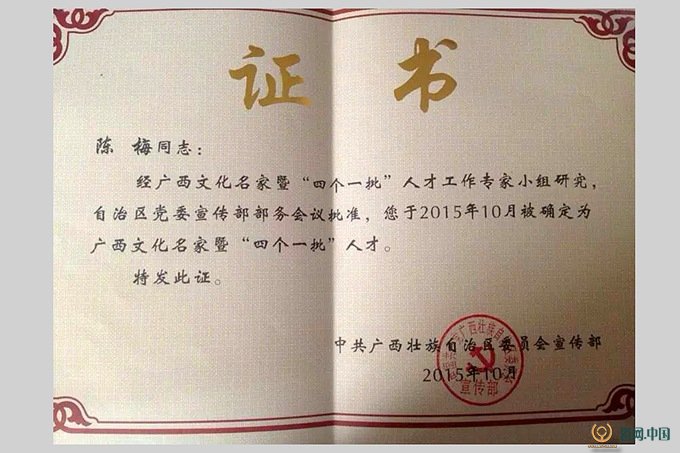 证 书
陈 梅同志：
经广西文化名家暨“四个一批”人才工作专家小组研究，
自治区党委宣传部部务会议批准，您于2015年10月被确定为
广西文化名家暨“四个一批”人才。
特发此证。
中共广西壮族自治区委员会宣传部
2015年10月
宣传部
.中国